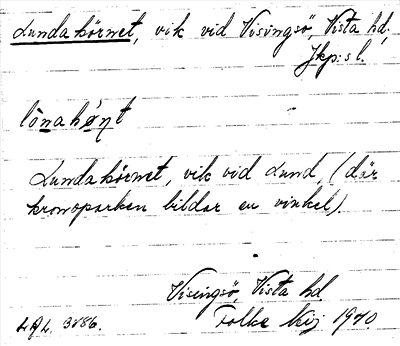 Lundakörnet, vik vid Visingsö, Vista hd,
Jkp:s l.
lònahǿņt
Lundakörnet, vik vid Lund, (där
kronoparken bildar en vinkel).
Visingsö, Vista hd
L.A.L. 3586. Folke Nij 1970.